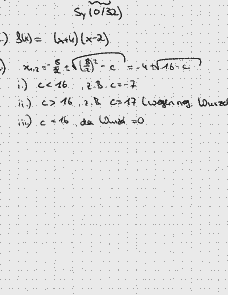 Sy (0/32)
.) f(x) = (x+4)(x-2)
) x₁,₂ = -8/2 ± √((8/2)² - c) = -4 ± √(16-c)
i.) c < 16 , z.B. c = -7
ii.) c > 16 , z.B. c = 17 (wegen neg. Wurzel
iii) c = 16 , da Wurzel = 0